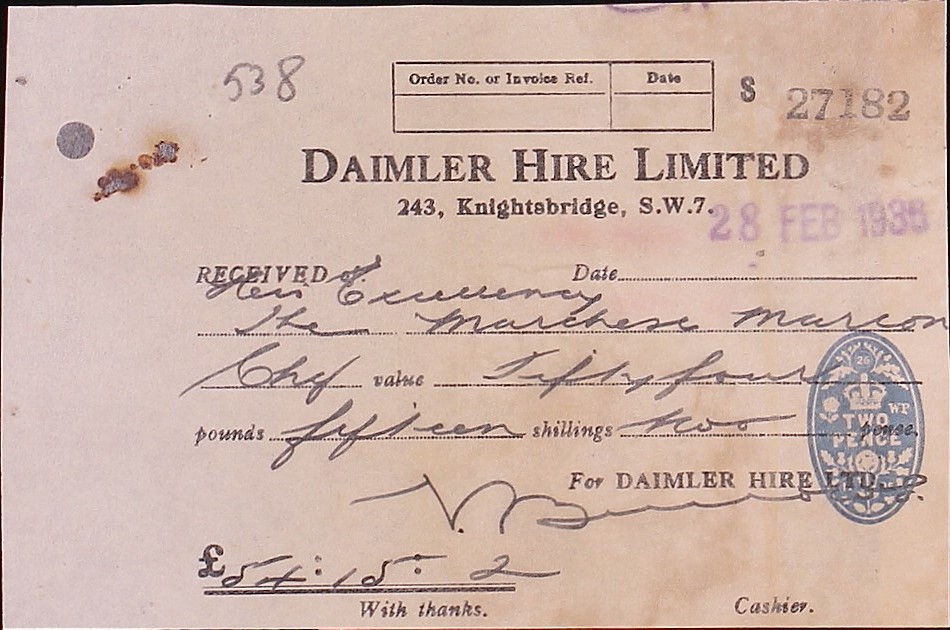 538
Order No. or Invoice Ref. Date
S 27182
DAIMLER HIRE LIMITED
243, Knightsbridge, S.W.7.
28 FEB 1936
RECEIVED of Date
Her Excellency
The Marchesa Marcon
Chq value Fifty four
pounds fifteen shillings two pence.
26
WP
TWO
PENCE
For DAIMLER HIRE LTD.
£54:15:2
With thanks. Cashier.